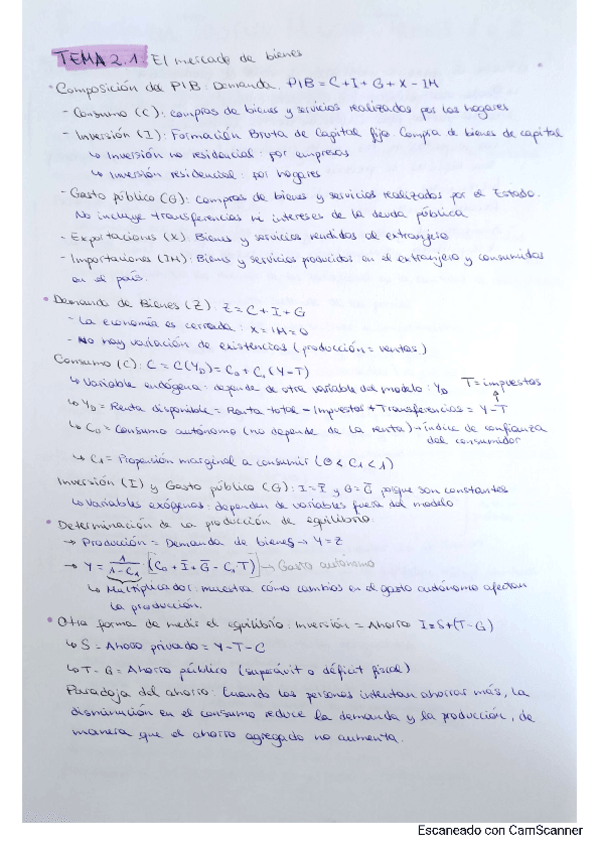 TEMA 2.1: El mercado de bienes
• Composición del PIB: Demanda: PIB = C + I + G + X - IM
- Consumo (C): compras de bienes y servicios realizados por los hogares
- Inversión (I): Formación Bruta de Capital fijo. Compra de bienes de capital
↳ Inversión no residencial: por empresas
↳ Inversión residencial: por hogares
- Gasto público (G): compras de bienes y servicios realizados por el Estado.
No incluye transferencias ni intereses de la deuda pública
- Exportaciones (X): Bienes y servicios vendidos de extranjero
- Importaciones (IM): Bienes y servicios producidos en el extranjero y consumidos
en el país.
• Demanda de Bienes (Z): Z = C + I + G
- La economía es cerrada: X = IM = 0
- No hay variación de existencias (producción = ventas)
Consumo (C): C = C(YD) = C0 + C1 (Y - T)
↳ Variable endógena: depende de otra variable del modelo: YD T = impuestos
↳ YD = Renta disponible = Renta total - Impuestos + Transferencias = Y - T
↳ C0 = Consumo autónomo (no depende de la renta) → índice de confianza
del consumidor
↳ C1 = Propensión marginal a consumir (0 < C1 < 1)
Inversión (I) y Gasto público (G): I = Ī y G = Ḡ porque son constantes
↳ Variables exógenas: dependen de variables fuera del modelo
• Determinación de la producción de equilibrio:
→ Producción = Demanda de bienes → Y = Z
→ Y = 1/(1 - C1) [C0 + Ī + Ḡ - C1T] → Gasto autónomo
↳ Multiplicador: muestra cómo cambios en el gasto autónomo afectan
la producción.
• Otra forma de medir el equilibrio: Inversión = Ahorro I = S + (T - G)
↳ S = Ahorro privado = Y - T - C
↳ T - G = Ahorro público (superávit o déficit fiscal)
Paradoja del ahorro: Cuando las personas intentan ahorrar más, la
disminución en el consumo reduce la demanda y la producción, de
manera que el ahorro agregado no aumenta.
Escaneado con CamScanner